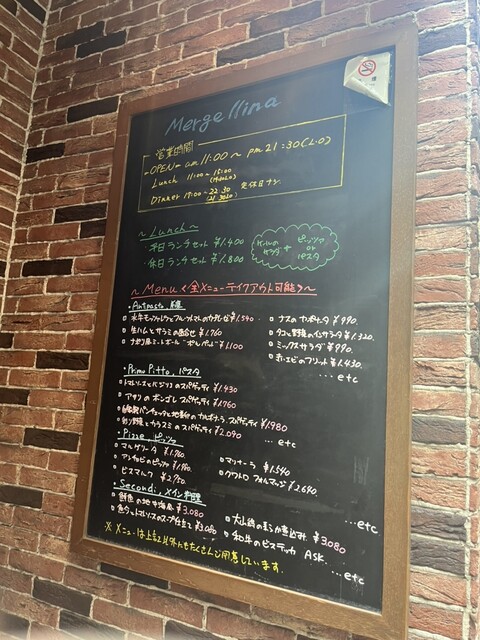 Mergellina
営業時間
OPEN am 11:00 ~ pm 21:30 (L.O)
Lunch 11:00 ~ 15:00
Dinner 17:00 - 22:30 定休日ナシ
~ Lunch ~
・平日ランチセット ¥1.400
・休日ランチセット ¥1.800
サラダ + ピッツァ or パスタ
~ Menu <全メニューテイクアウト可能> ~
・Antipasto 前菜
¥1.540
生ハムとサラミの盛合せ ¥1.760
¥1.100
ナスのカポナータ ¥990
¥1.320
ミックスサラダ ¥990
赤エビのフリット ¥1.430
… etc
・Primo Piatto, パスタ
トマトソースとバジリコのスパゲッティ ¥1.430
アサリのボンゴレ スパゲッティ ¥1.760
自家製パンチェッタと地養卵のカルボナーラ スパゲッティ ¥1.980
カラスミのスパゲッティ ¥2.090
… etc
・Pizze, ピッツァ
マルゲリータ ¥1.760
アンチョビのピッツァ
ビスマルク
マリナーラ ¥1.540
クワトロ フォルマッジ ¥2.640
… etc
・Secondi, メイン料理
¥3.080
¥3.080
和牛のビステッカ ASK.
… etc
※ メニューは上記以外にもたくさんご用意しています.